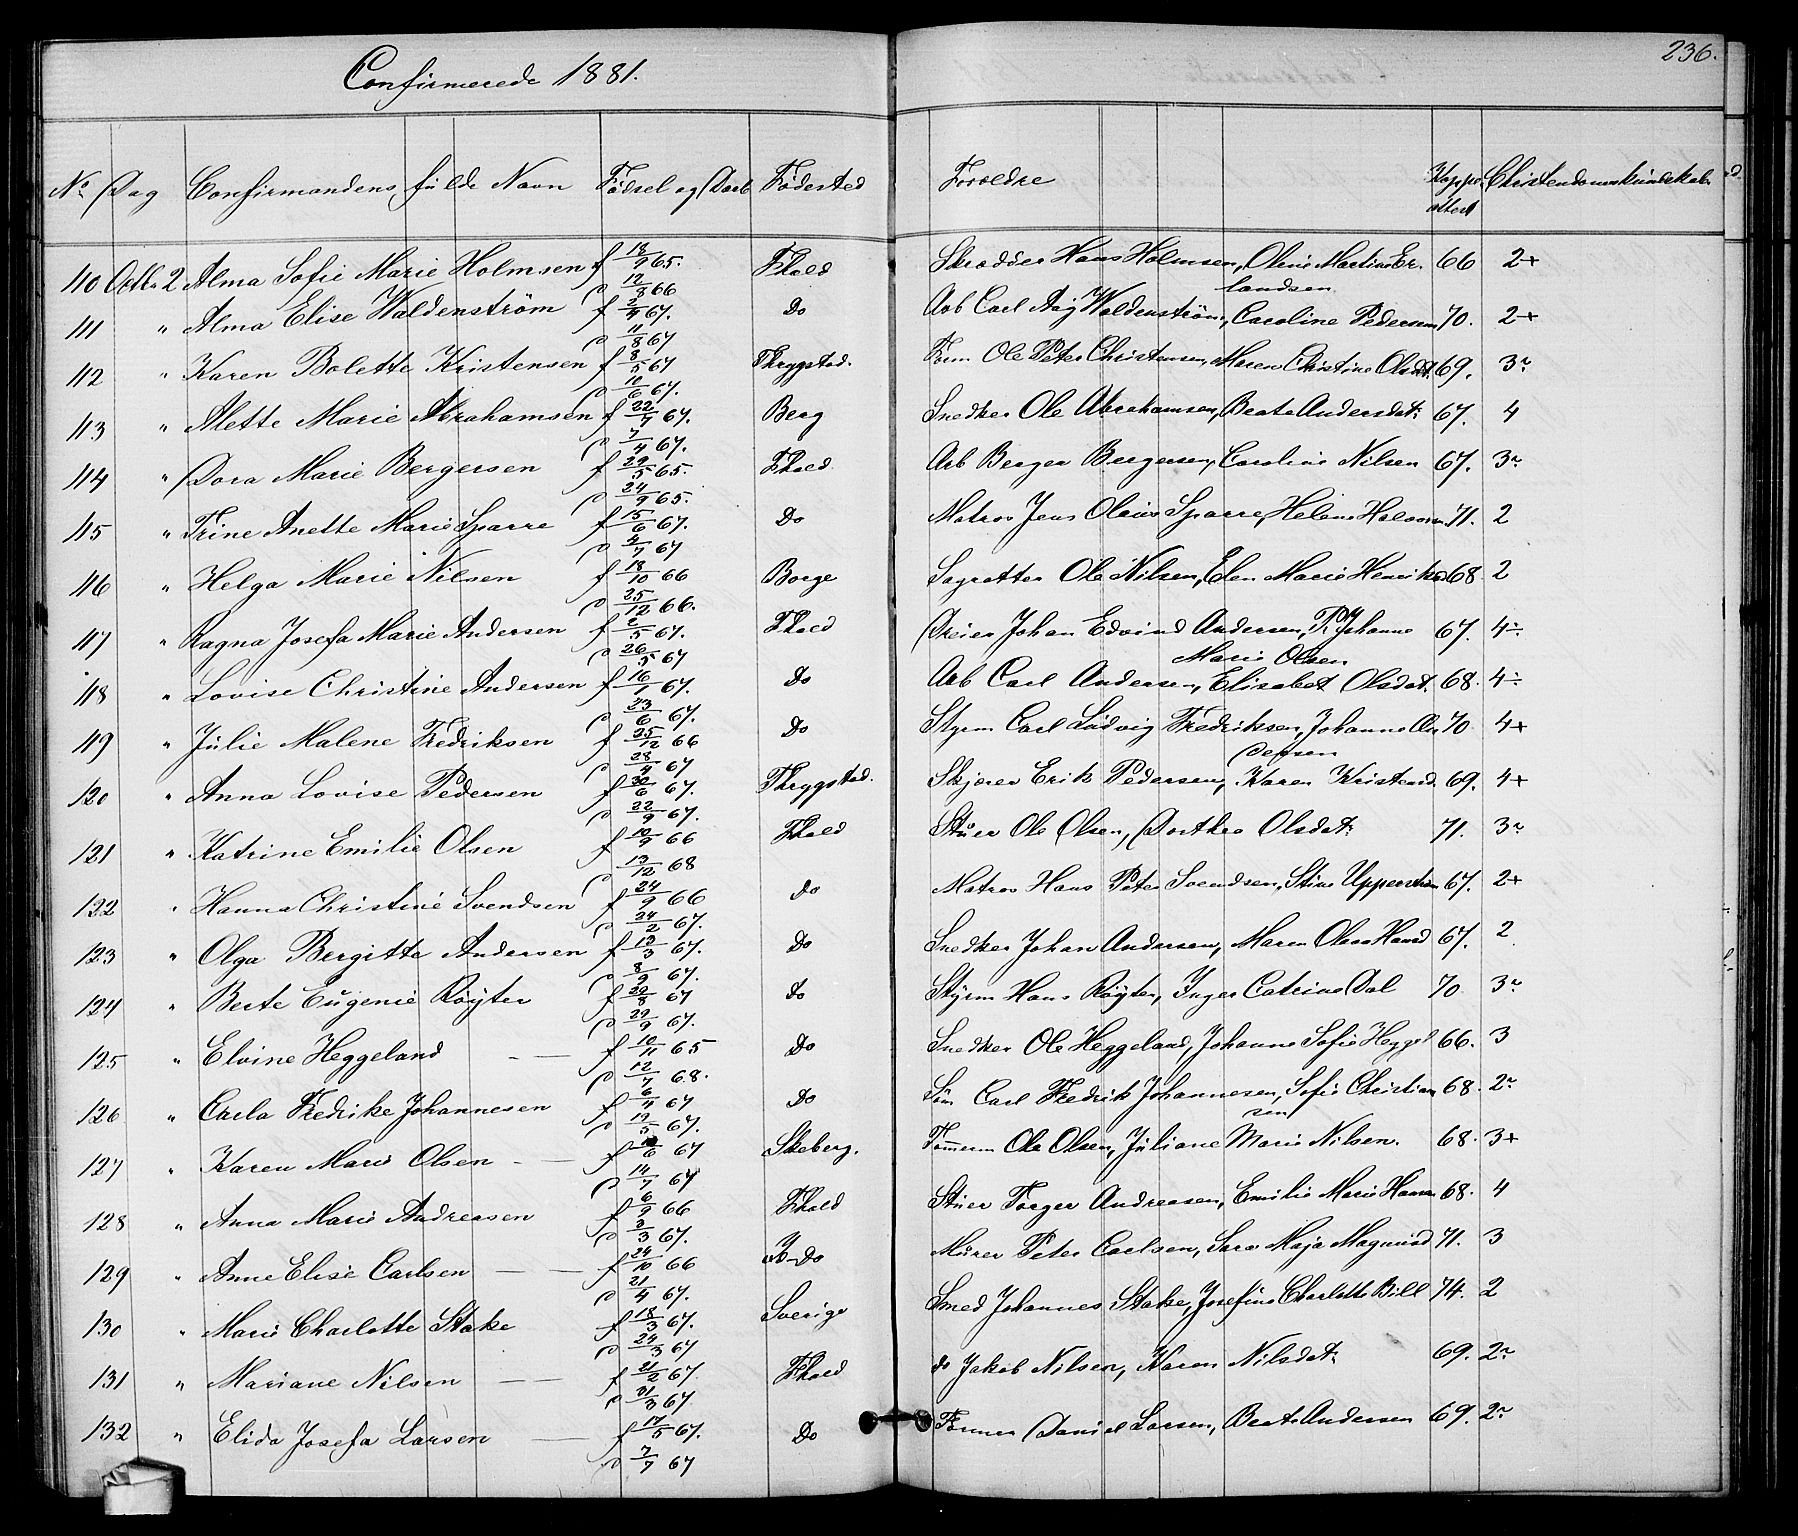 Confirmerede 1881.
236.
No Dag Confirmandens fulde Navn Fødsel og Daab Fødested Forældre Koppeattest Christendomskundskab
110 Octbr 2 Alma Sofie Marie Holmsen f 18/9 65. D 12/8 66 Fhald Skrædder Hans Holmsen, Oline Martine Er- 66 2+
landsen
111 " Alma Elise Waldenström f 2/4 67. D 11/8 67 Do Arb Carl Aug Waldenström, Caroline Pedersen 70. 2+
112 " Karen Bolette Kristensen f 8/5 67 D 10/6 67. Thrygstad. Tøm Ole Peter Christensen, Maren Christine Olsdt. 69. 3
113 " Alette Marie Abrahamsen f 22/1 67. D 7/4 67. Berg Snedker Ole Abrahamsen, Beate Andersdat: 67. 4
114 " Dora Marie Bergersen f 29/5 65. D 24/9 65. Fhald Arb Berger Bergersen, Caroline Nilsen 67. 3
115 " Trine Anette Marie Sparre f 15/6 67. D 4/7 67 Do Matros Jens Olaus Sparre, Helene 71. 2
116 " Helga Marie Nilsen f 18/10 66 D 25/12 66. Borge Sagretter Ole Nilsen, Elen Marie Henriks 68. 2
117 " Ragna Josefa Marie Andersen f 2/5 67. D 26/5 67 Fhald Dreier Johan Edvind Andersen, P. Johanne 67. 4÷
Marie Olsen
118 " Lovise Christine Andersen f 16/1 67. D 23/6 67. Do Arb Carl Andersen, Elisabet Olsdat. 68. 4÷
119 " Julie Malene Fredriksen f 25/12 66 D 28/4 67 Do Styrm Carl Ludvig Fredriksen, Johanne 70 4+
120 " Anna Lovise Pedersen f 30/6 67. D 22/9 67. Thrygstad. Skjerer Erik Pedersen, Karen Kristensd. 69. 4+
121 " Katrine Emilie Olsen f 10/9 66 D 13/12 68 Fhald Stuer Ole Olsen, Dorthea Olsdat: 71. 3
122 " Hanna Christine Svendsen f 24/9 66 D 24/2 67. Do Matros Hans Peter Svendsen, Stine Upperström 67. 2+
123 " Olga Bergitte Andersen f 13/3 67. D 8/9 67. Do Snedker Johan Andersen, Maren Olava Hansd 67. 2
124 " Berte Eugenie Røyter f 20/8 67 D 29/9 67. Do Styrm Hans Røyter, Inger Catrine Dal 70. 3
125 " Elvine Heggeland f 10/11 65 D 12/7 68. Do Snedker Ole Heggeland, Johanne Sofie Heggel 66. 3
126 " Carla Fredrike Johannesen f 6/4 67 D 19/5 67. Do Søm Carl Fredrik Johannesen, Sofie Christian 68. 2
sen
127 " Karen Marie Olsen f /6 67 D 14/7 67 Skeberg. Tømmerm Ole Olsen, Juliane Marie Nilsen. 68. 3+
128 " Anna Marie Andreasen f 6/9 66 D 3/3 67. Fhald Stuer Torger Andreasen, Emilie Marie Hansen 68. 4
129 " Anne Elise Carlsen f 24/10 66 D 21/4 67. Do Murer Peter Carlsen, Sara Maja Magnusd 71. 3
130 " Marie Charlotte Stake f 18/3 67. D 24/3 67 Sverige Smed Johannes Stake, Josefine Charlotte Bill 74. 2
131 " Mariane Nilsen f 21/2 67. D 31/3 67. Fhald do Jakob Nilsen, Karen Nilsdat: 69. 2
132 " Elida Josefa Larsen f 17/5 67. D 7/7 67 Do Tømmer Daniel Larsen, Beate Andersen 69. 2